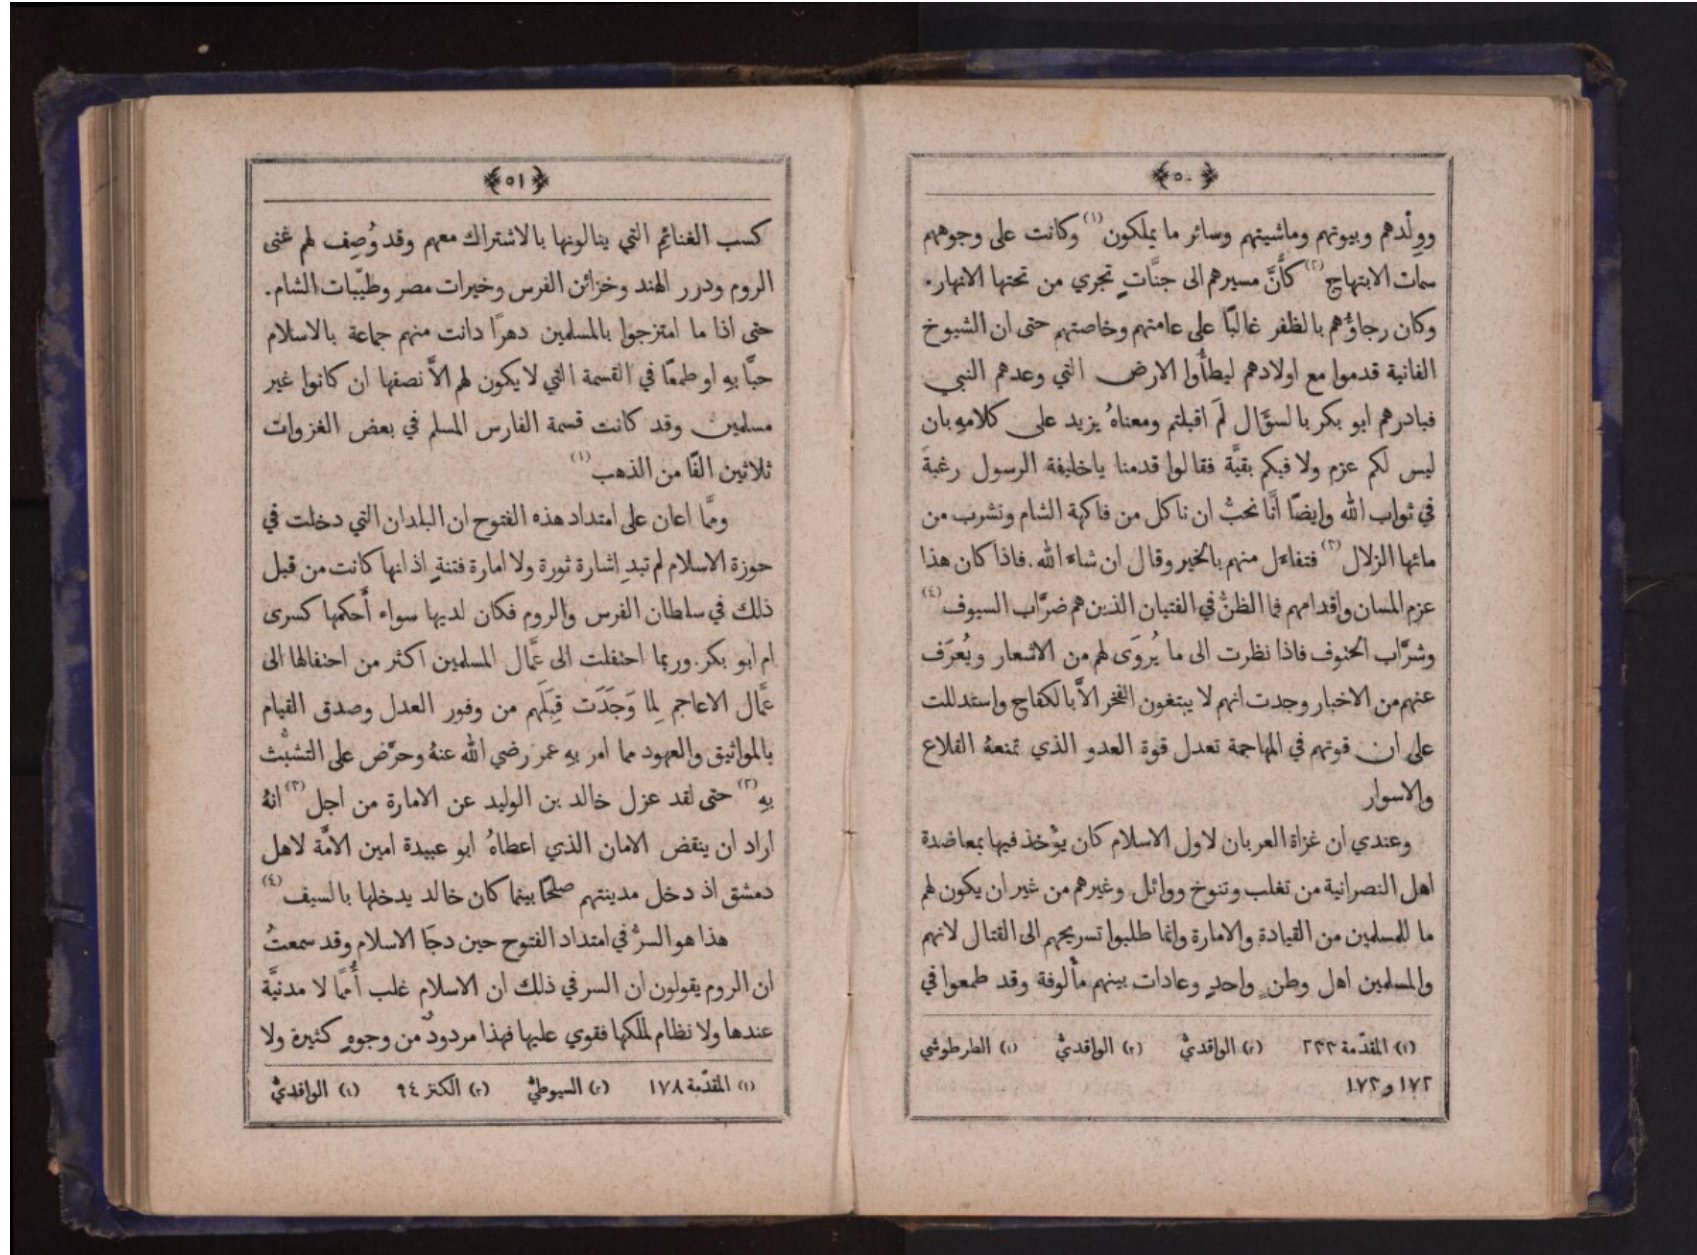 ﴿٥٠﴾
وولْدهم وبيوتهم وماشيتهم وسائر ما يملكون(١) وكانت على وجوههم
سمات الابتهاج(٢) كأَنَّ مسيرهم الى جنَّاتٍ تجري من تحتها الانهار.
وكان رجاؤهم بالظفر غالبًا على عامتهم وخاصتهم حتى ان الشيوخ
الفانية قدموا مع اولادهم ليطأُوا الارض التي وعدهم النبي
فبادرهم ابو بكر بالسؤَال لَم اقبلتم ومعناهُ يزيد على كلامهِ بان
ليس لكم عزم ولا فيكم بقيَّة فقالوا قدمنا ياخليفة الرسول رغبةً
في ثواب الله وايضًا انَّا نحبُّ ان ناكل من فاكهة الشام ونشرب من
مائها الزلال(٣) فتفاءل منهم بالخير وقال ان شاء الله. فاذا كان هذا
عزم المسان واقدامهم فما الظنُّ في الفتيان الذين هم ضرَّاب السيوف(٤)
وشرَّاب الحتوف فاذا نظرت الى ما يُروَى لهم من الاشعار ويُعرَف
عنهم من الاخبار وجدت انهم لا يبتغون الفخر الاَّ بالكفاح واستدللت
على ان قوتهم في المهاجمة تعدل قوة العدو الذي تمنعهُ القلاع
والاسوار
وعندي ان غزاة العربان لاول الاسلام كان يؤْخذ فيها بمعاضدة
اهل النصرانية من تغلب وتنوخ ووائل وغيرهم من غير ان يكون لهم
ما للمسلمين من القيادة والامارة وانما طلبوا تسريحهم الى القتال لانهم
والمسلمين اهل وطنٍ واحدٍ وعادات بينهم مأْلوفة وقد طمعوا في
(١) المقدّمة ٢٣٣ (٢) الواقديّ (٣) الواقديّ (٤) الطرطوشي
١٧٢ و١٧٣
﴿٥١﴾
كسب الغنائم التي ينالونها بالاشتراك معهم وقد وُصِف لهم غنى
الروم ودرر الهند وخزائن الفرس وخيرات مصر وطيّبات الشام.
حتى اذا ما امتزجوا بالمسلمين دهرًا دانت منهم جماعة بالاسلام
حبًّا بهِ او طمعًا في القسمة التي لا يكون لهم الاَّ نصفها ان كانوا غير
مسلمين وقد كانت قسمة الفارس المسلم في بعض الغزوات
ثلاثين الفًا من الذهب(١)
وممَّا اعان على امتداد هذه الفتوح ان البلدان التي دخلت في
حوزة الاسلام لم تبدِ اشارة ثورة ولا امارة فتنةٍ اذ انها كانت من قبل
ذلك في سلطان الفرس والروم فكان لديها سواء أَحكمها كسرى
ام ابو بكر. وربما احتفلت الى عمَّال المسلمين اكثر من احتفالها الى
عمَّال الاعاجم لِما وَجَدَت قِبَلَهم من وفور العدل وصدق القيام
بالمواثيق والعهود مما امر بهِ عمر رضي الله عنهُ وحرَّض على التشبُّث
بهِ(٢) حتى لقد عزل خالد بن الوليد عن الامارة من اجل(٣) انهُ
اراد ان ينقض الامان الذي اعطاهُ ابو عبيدة امين الامَّة لاهل
دمشق اذ دخل مدينتهم صلحًا بينما كان خالد يدخلها بالسيف(٤)
هذا هو السرُّ في امتداد الفتوح حين دجَا الاسلام وقد سمعتُ
ان الروم يقولون ان السر في ذلك ان الاسلام غلب أُممًا لا مدنيَّة
عندها ولا نظام لملكها فقوي عليها فهذا مردودٌ من وجوهٍ كثيرة ولا
(١) المقدّمة ١٧٨ (٢) السيوطيّ (٣) الكنز ٩٤ (٤) الواقديّ